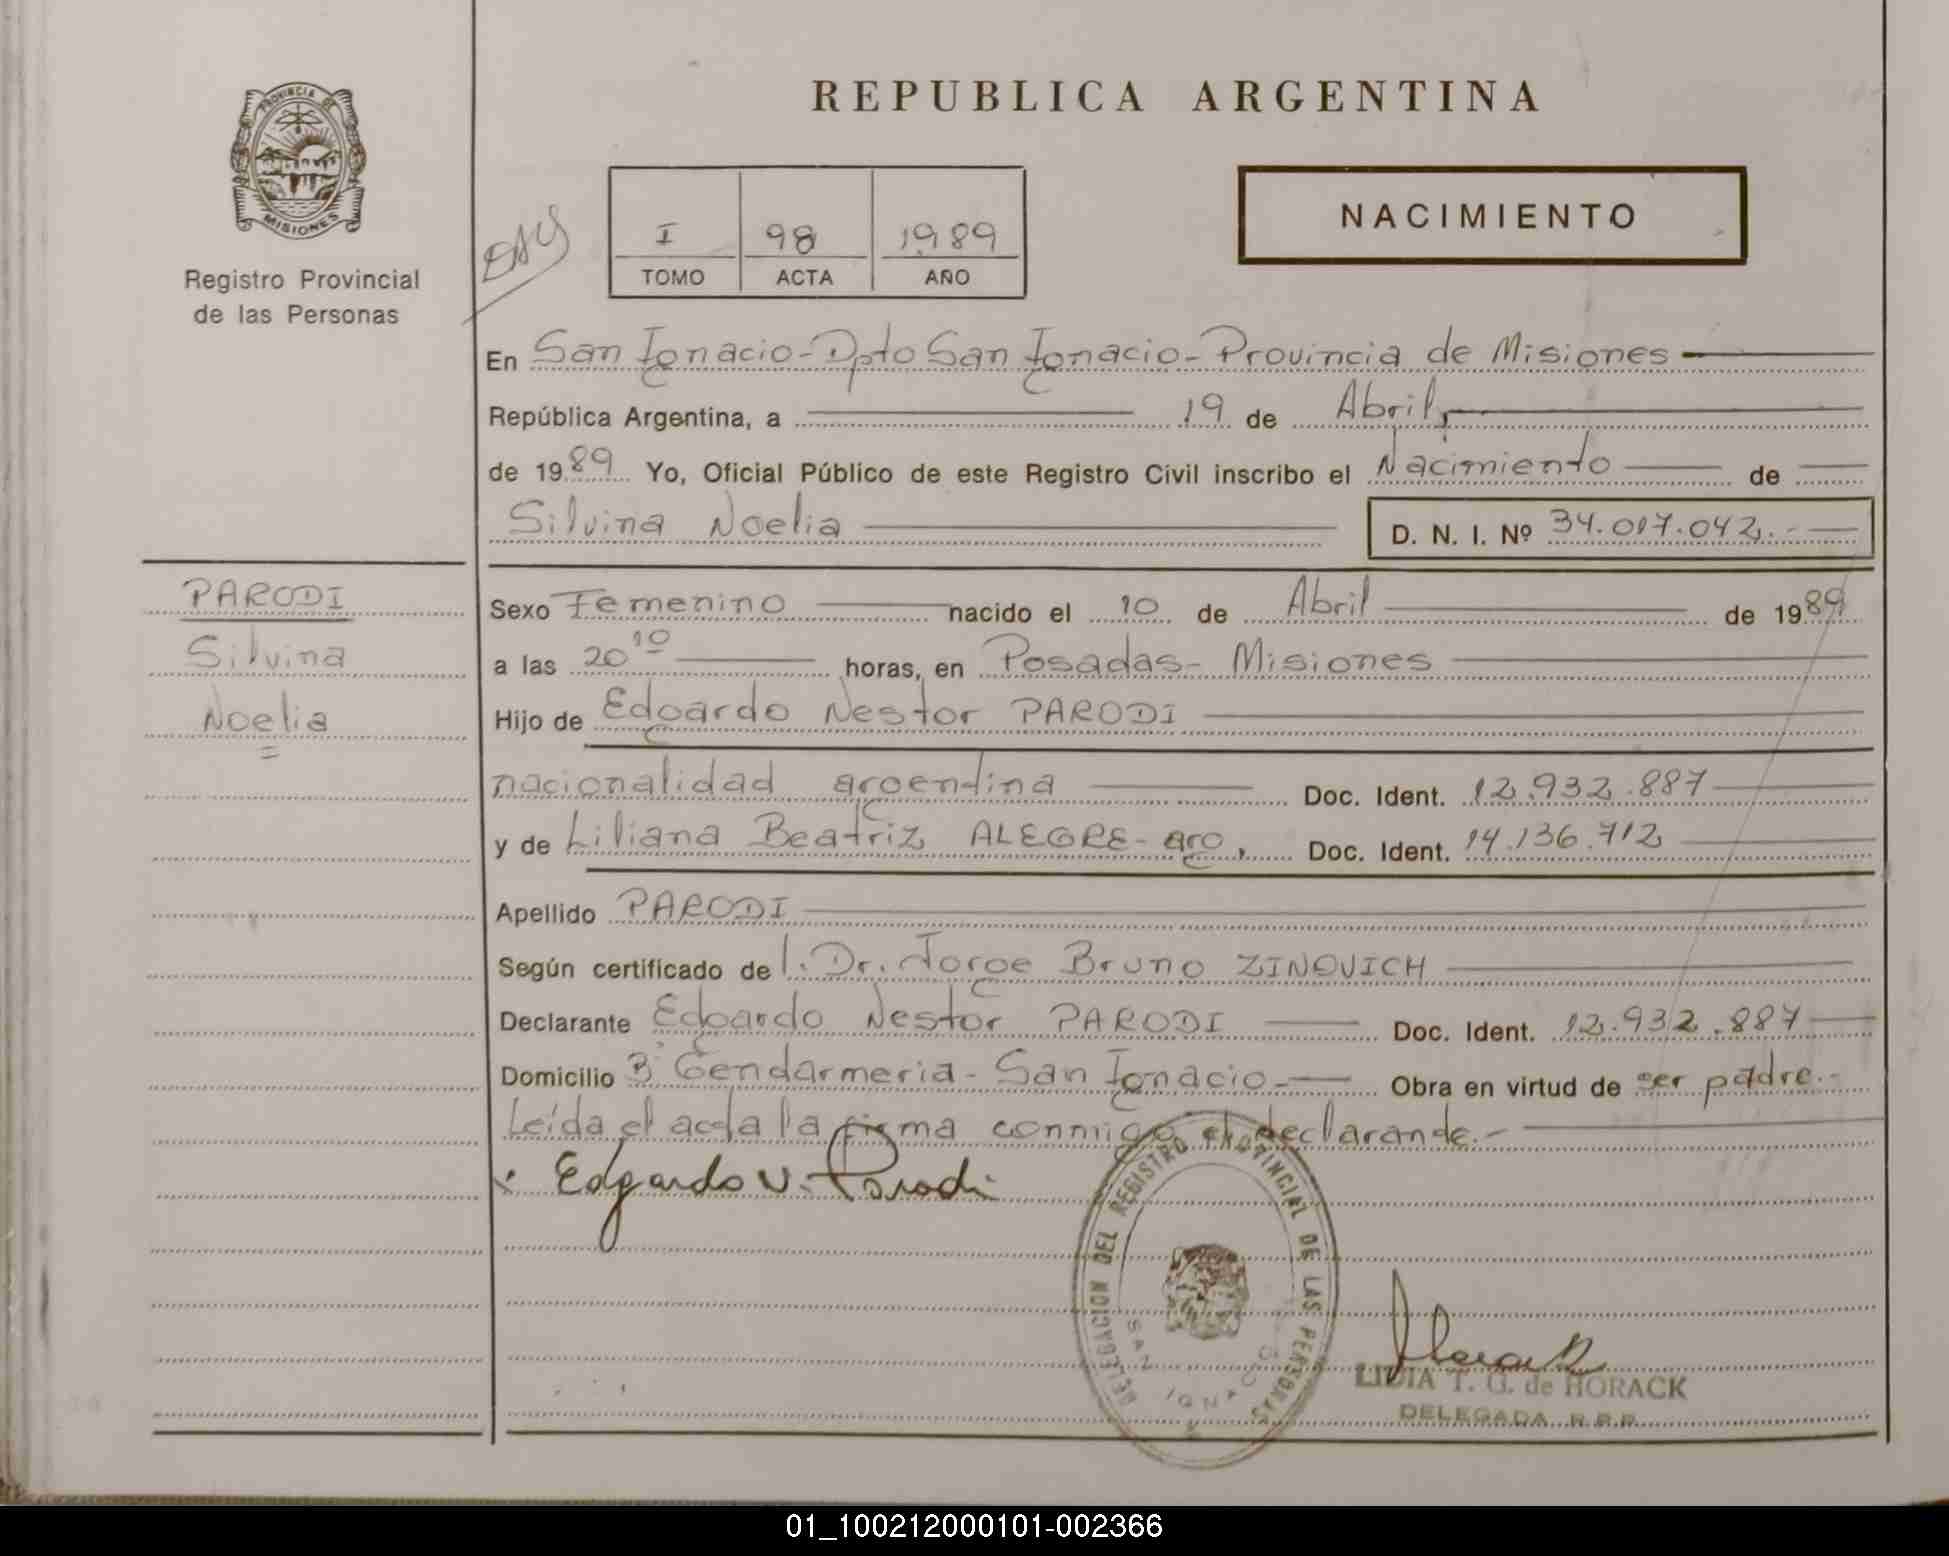 REPUBLICA ARGENTINA
PROVINCIA DE
MISIONES
Registro Provincial
de las Personas
I 98 1989
TOMO ACTA AÑO
NACIMIENTO
En San Ignacio - Dpto San Ignacio - Provincia de Misiones
República Argentina, a 19 de Abril,
de 1989 Yo, Oficial Público de este Registro Civil inscribo el Nacimiento de
Silvina Noelia D. N. I. Nº 34.017.042.-
PARODI
Silvina
Noelia
Sexo Femenino nacido el 10 de Abril de 1989
a las 20 10 horas, en Posadas - Misiones
Hijo de Edgardo Nestor PARODI
nacionalidad argentina Doc. Ident. 12.932.887
y de Liliana Beatriz ALEGRE - arg, Doc. Ident. 14.136.712
Apellido PARODI
Según certificado de l. Dr. Jorge Bruno ZINOVICH
Declarante Edgardo Nestor PARODI Doc. Ident. 12.932.887
Domicilio Bº Gendarmeria - San Ignacio - Obra en virtud de ser padre.-
Leída el acta la firma conmigo el declarante.-
Edgardo N. Parodi
DELEGACION DEL REGISTRO PROVINCIAL DE LAS PERSONAS
SAN IGNACIO
Horack
LIDIA T. G. de HORACK
DELEGADA R.P.P.
01_100212000101-002366